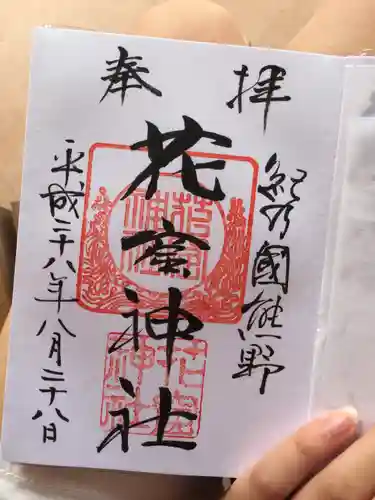 奉拝
紀乃國熊野
花窟神社
平成二十八年八月二十八日
花窟神社